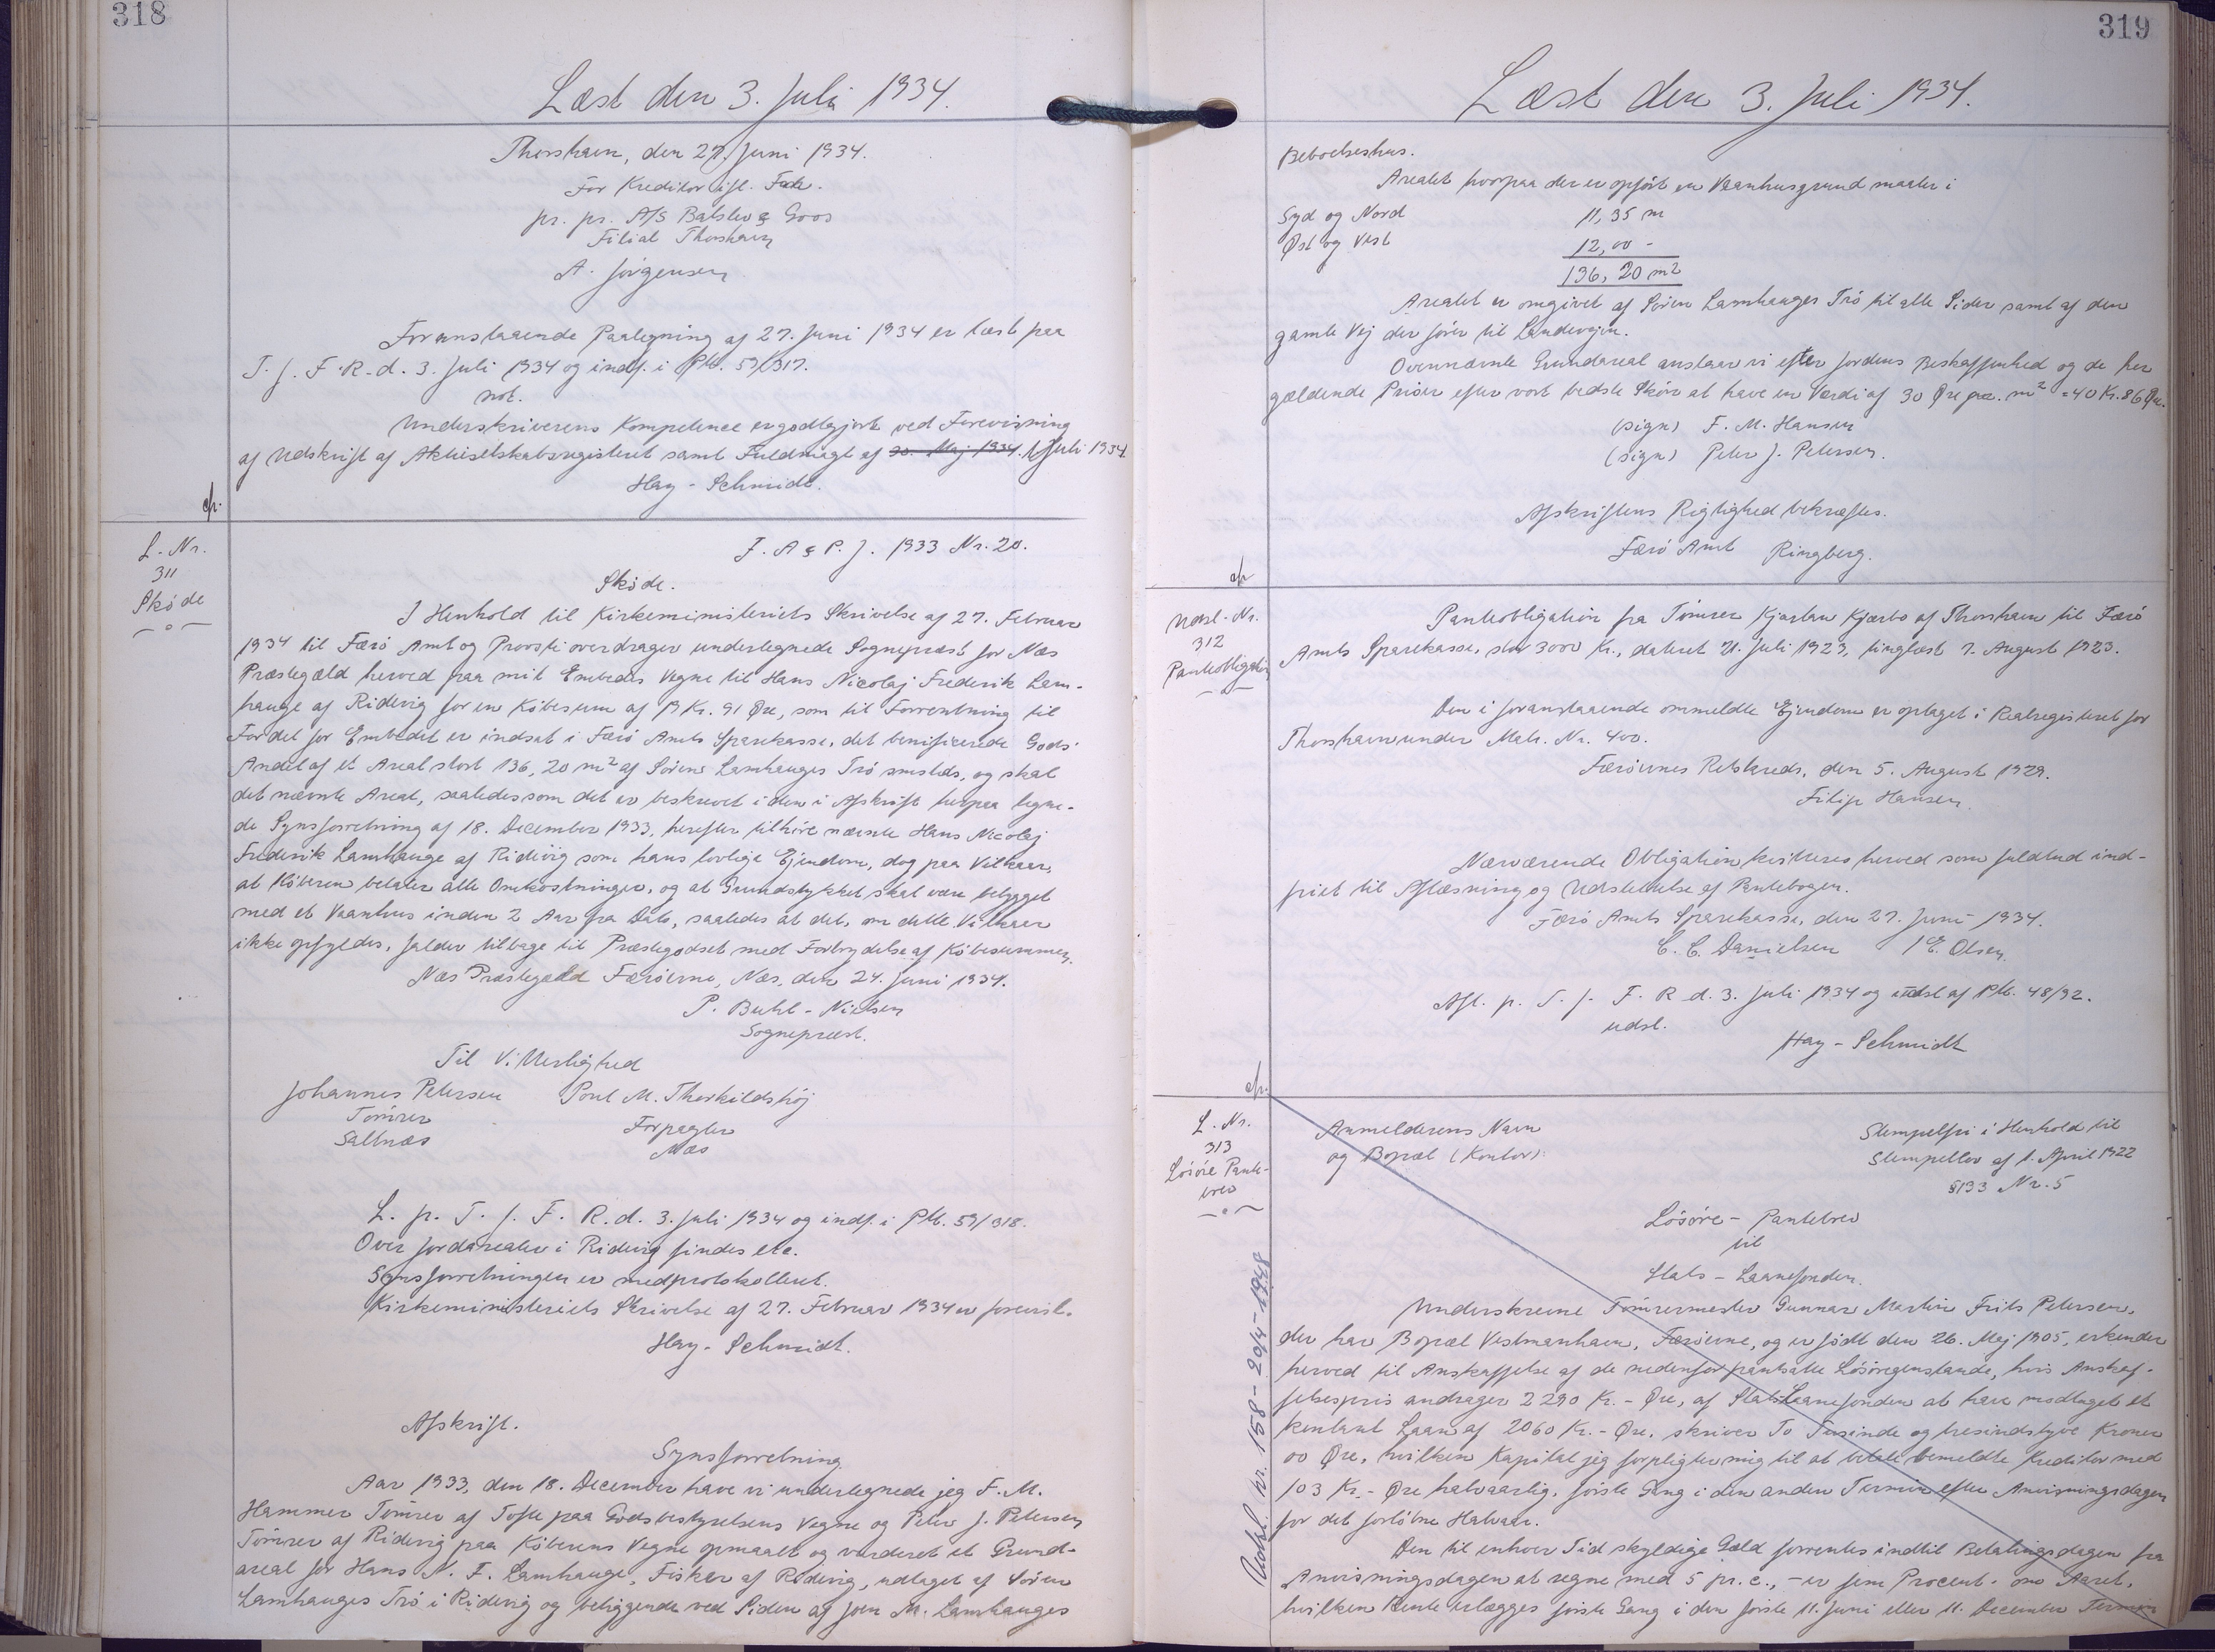 318
Læst den 3. Juli 1934.
Thorshavn, den 27. Juni 1934.
For Kreditor ifl.
pr. pr. A/S Balslev & Goos
Filial Thorshavn
A. Jörgensen
Foranstaaende Paategning af 27. Juni 1934 er læst paa
T. f. F. R. d. 3. Juli 1934 og indf. i Ptb. 59/317.
not.
Underskriverens Kompetence er godtgjort ved Forevisning
af Udskrift af Aktieselskabsregisteret samt Fuldmagt af 30. Maj 1934. 1 Juli 1934
Hay-Schmidt.
cfr.
L. Nr.
311
Sköde
F. A & P. J. 1933 Nr. 20.
Sköde.
I Henhold til Kirkeministeriets Skrivelse af 27. Februar
1934 til Færö Amt og Provsti overdrager undertegnede Sognepræst for Næs
Præstegæld herved paa mit Embedes Vegne til Hans Nicolaj Frederik Lam-
hauge af Ridevig for en Köbesum af 19 Kr. 91 Øre, som til Forrentning til
Fordel for Embedet er indsat i Færö Amts Sparekasse, det benificerede Gods'
Andel af et Areal stort 136,20 m² af Sörens Lamhauges Trö smsteds, og skal
det nævnte Areal, saaledes som det er beskrevet i den i Afskrift herpaa tegne-
de Synsforretning af 18. December 1933, herefter tilhöre nævnte Hans Nicolaj
Frederik Lamhauge af Ridevig som hans lovlige Ejendom, dog paa Vilkaar,
at Köberen betaler alle Omkostninger, og at Grundstykket skal være bebygget
med et Vaanhus inden 2 Aar fra Dato, saaledes at det, om dette Vilkaar
ikke opfyldes, falder tilbage til Præstegodset med Fortrydelse af Köbesummen.
Næs Præstegæld Færöerne, Næs, den 24. Juni 1934.
P. Buhl-Nielsen
Sognepræst.
Til Vitterlighed
Johannes Petersen Poul M. Thorkildshöj
Tömrer Forpagter
Saltnæs Næs
L. p. T. f. F. R. d. 3. Juli 1934 og indf. i Ptb. 59/318.
Over Jordarealer i Ridevig findes etc.
Synsforretningen er medprotokolleret.
Kirkeministeriets Skrivelse af 27. Februar 1934 er forevist.
Hay-Schmidt.
Afskrift.
Synsforretning
Aar 1933, den 18. December have vi undertegnede jeg F. M.
Hammer Tömrer af Tofte paa Godsbestyrelsens Vegne og Peter J. Petersen
Tömrer af Ridevig paa Köberens Vegne opmaalt og vurderet et Grund-
areal for Hans N. F. Lamhauge, Fisker af Ridevig, udtaget af Sören
Lamhauges Trö i Ridevig og beliggende ved Siden af Joen M. Lamhauges
319
Læst den 3. Juli 1934.
Beboelseshus.
Arealet hvorpaa der er opfört en Vaanhusgrund maaler i
Syd og Nord 11,35 m
Øst og Vest 12,00 -
136,20 m2
Arealet er omgivet af Sören Lamhauges Trö til alle Sider samt af den
gamle Vej der förer til Landevejen.
Ovennævnte Grundareal anslaar vi efter Jordens Beskaffenhed og de her
gældende Priser efter vort bedste Skön at have en Værdi af 30 Øre pr. m² = 40 Kr. 86 Øre.
(sign) F. M. Hansen
(sign) Peter J. Petersen.
Afskriftens Rigtighed bekræftes.
Færö Amt Ringberg.
cfr
Udsl.-Nr.
312
Panteobligation
Panteobligation fra Tömrer Kjartan Kjærbo af Thorshavn til Færö
Amts Sparekasse, stor 3000 Kr., dateret 21. Juli 1923, tinglæst 7. August 1923.
Den i foranstaaende ommeldte Ejendom er optaget i Realregisteret for
Thorshavn under Matr. Nr. 400.
Færöernes Retskreds, den 5. August 1929.
Filip Hansen.
Nærværende Obligation kvitteres herved som fuldtud ind-
friet til Aflæsning og Udslettelse af Pantebogen.
Færö Amts Sparekasse, den 27. Juni 1934.
C. C. Danielsen / E. Olsen.
Afl. p. T. f. F. R d. 3. Juli 1934 og udsl af Ptb. 48/92.
udsl.
Hay-Schmidt
cfr.
L. Nr.
313
Lösöre Pante-
brev
Udsl. nr. 158-20/4-1948
Anmelderens Navn
og Bopæl (Kontor):
Stempelfri i Henhold til
Stempellov af 1. April 1922
§133 Nr. 5
Lösöre-Pantebrev
til
Stats-Laanefonden.
Underskrevne Tömrermester Gunnar Martin Frits Petersen,
der har Bopæl Vestmanhavn, Færöerne, og er födt den 26. Maj 1905, erkender
herved til Anskaffelse af de nedenfor pantsatte Lösöregenstande, hvis Anskaf-
felsespris andrager 2290 Kr. - Øre, af Stats-Laanefonden at have modtaget et
kontant Laan af 2060 Kr. - Øre, skriver To Tusinde og tresindstyve Kroner
00 Øre, hvilken Kapital jeg forpligter mig til at betale bemeldte Kreditor med
103 Kr. - Øre halvaarlig, förste Gang i den anden Termin efter Anvisningsdagen
for det forlöbne Halvaar.
Den til enhver Tid skyldige Gæld forrentes indtil Betalingsdagen fra
Anvisningsdagen at regne med 5 pr. c., - er fem Procent. om Aaret,
hvilken Rente erlægges förste Gang i den förste 11. Juni eller 11. December Termin